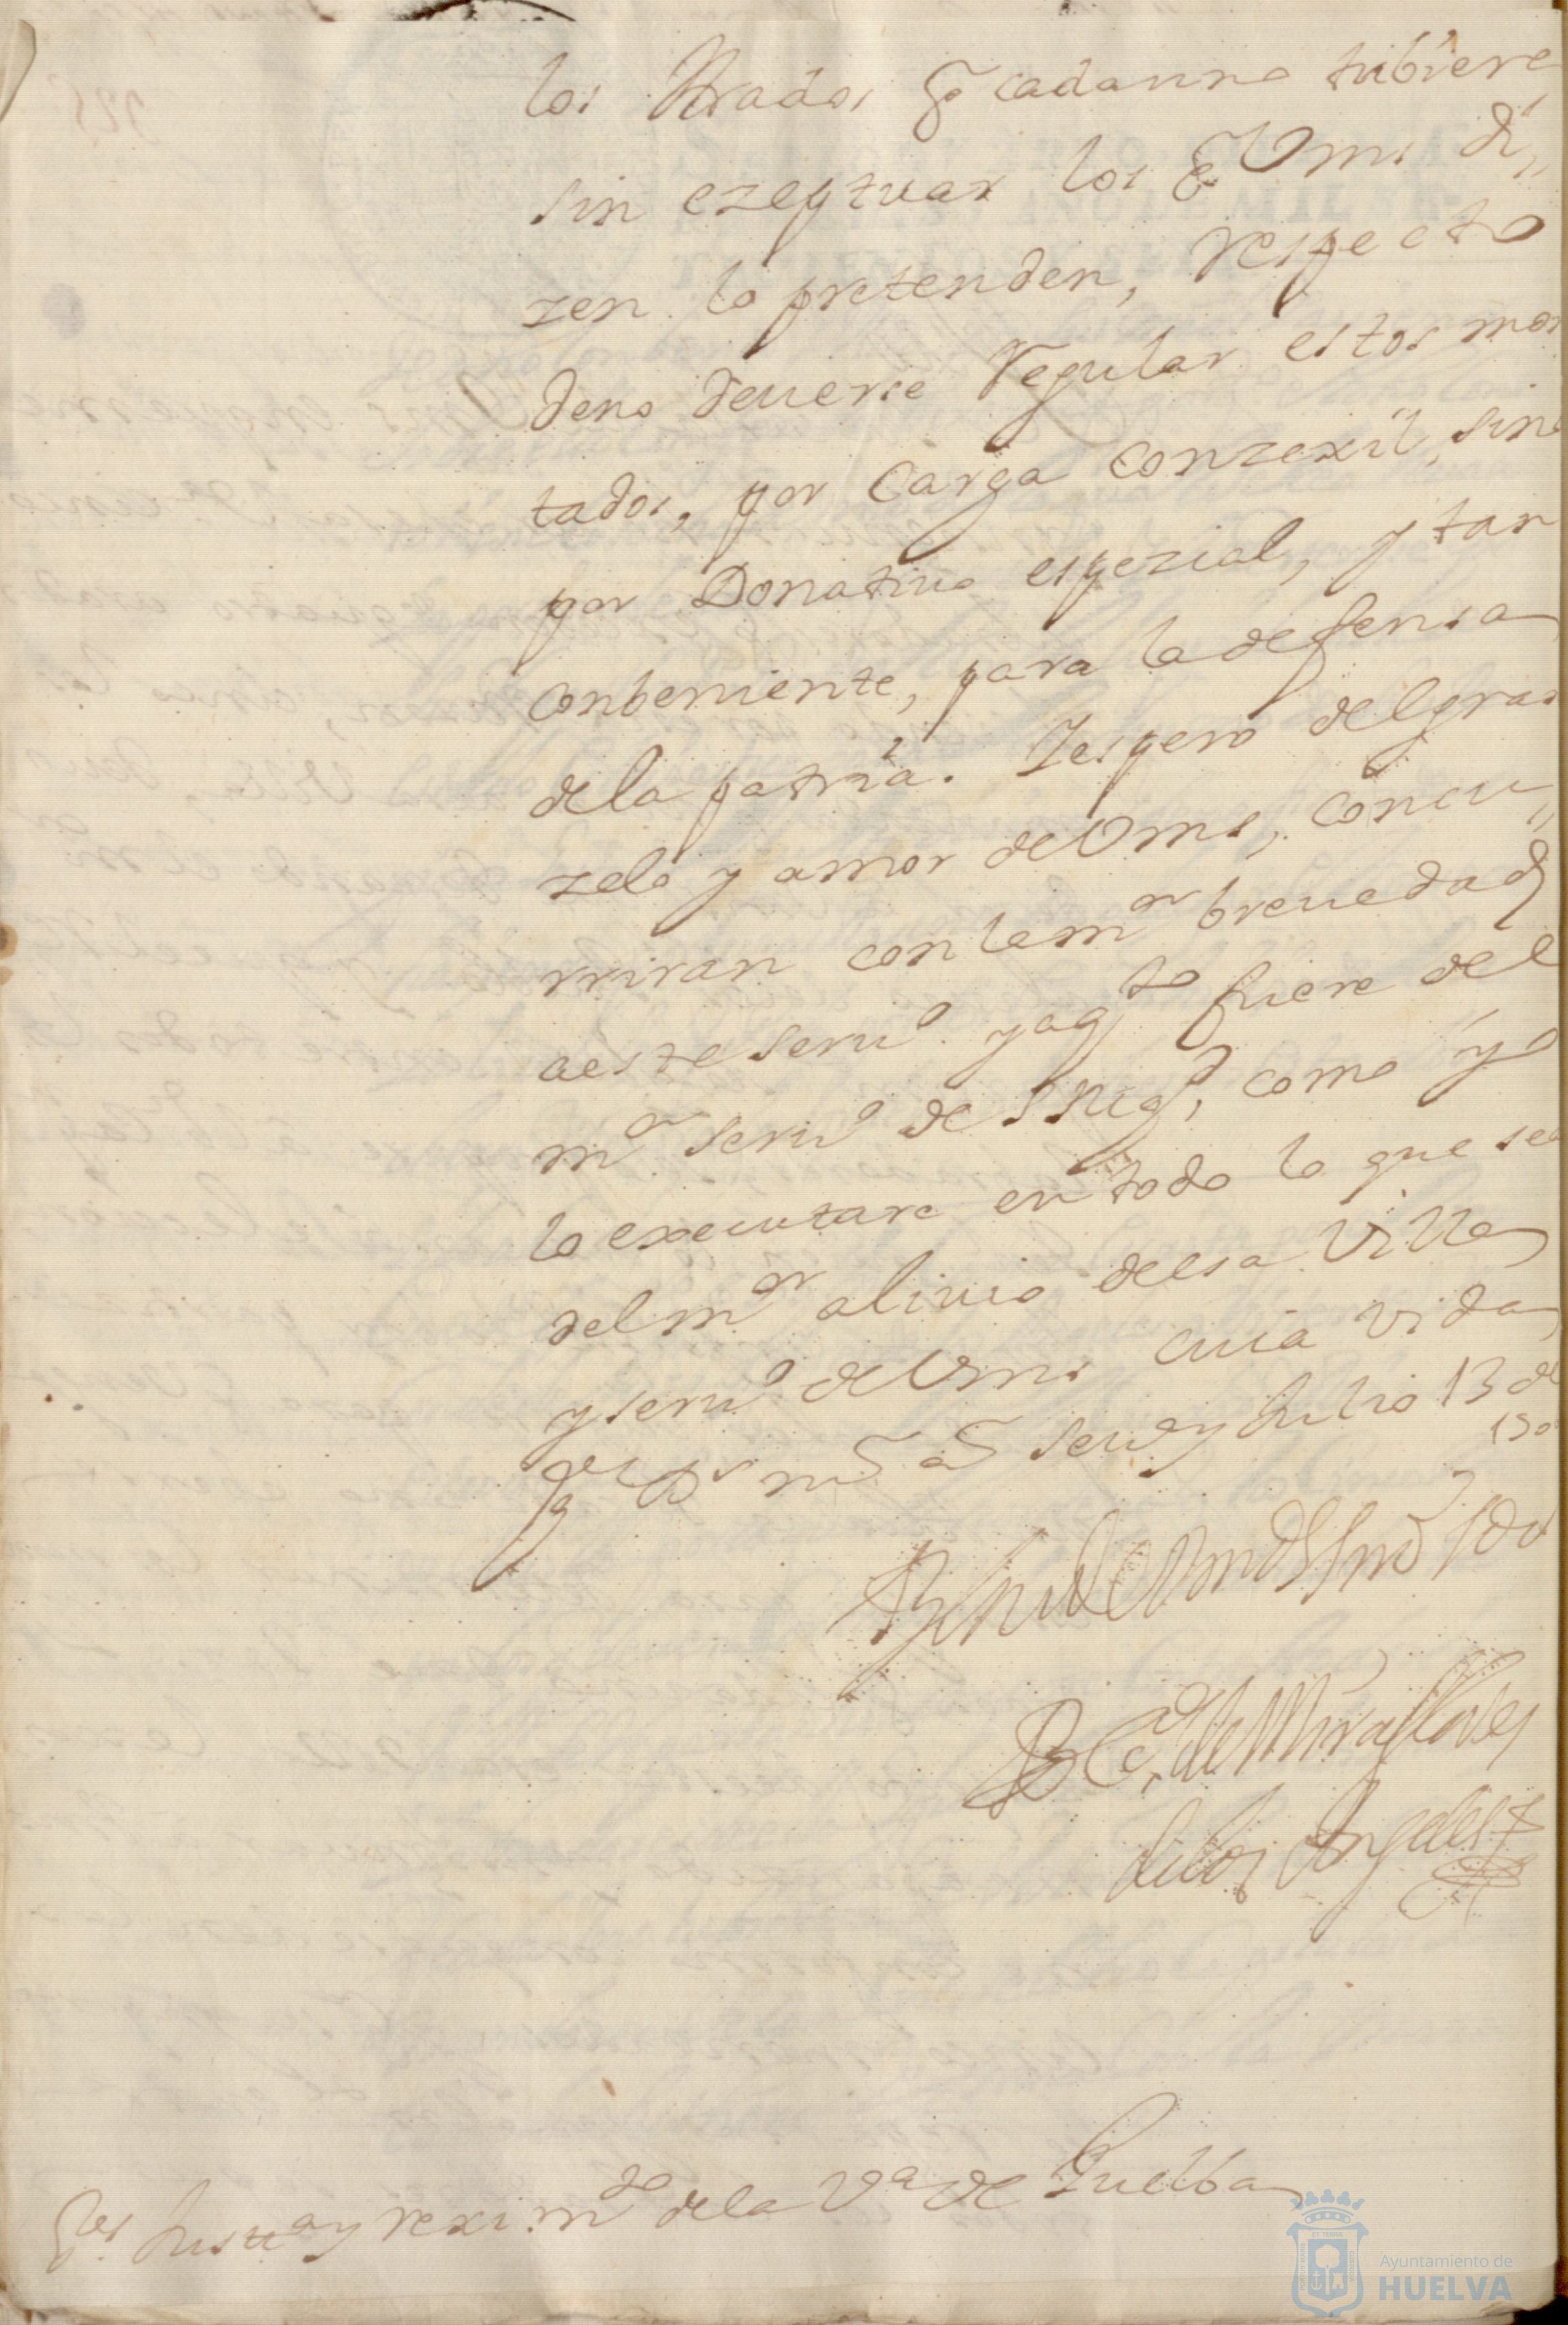 los Prados q cada uno tubiere
sin ezeptuar los q Vms di,,
zen lo pretenden, respecto
deno deverse Regular estos mon
tados, por Carga conzexil, sino
por Donativo espezial, y tan
conbeniente, para la defensa
dela patria. Iespero del gran
zelo y amor de Vms, concu,,
rriran con la mor brevedad
aeste servo. y a qto fuere del
mor servo de S Mgd, como yo
lo executare en todo lo que sea
del mor alivio de esa Villa
y servo de Vms cuia vida
gue Ds ms as Seva y Julio 13 de
de Miraflores
delos Angeles
Sres Justa y reximto dela Va de Huelba
Ayuntamiento de
HUELVA